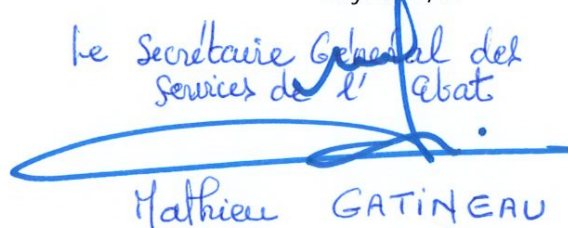 Le Secrétaire Général des
Services de l' Etat
Mathieu GATINEAU